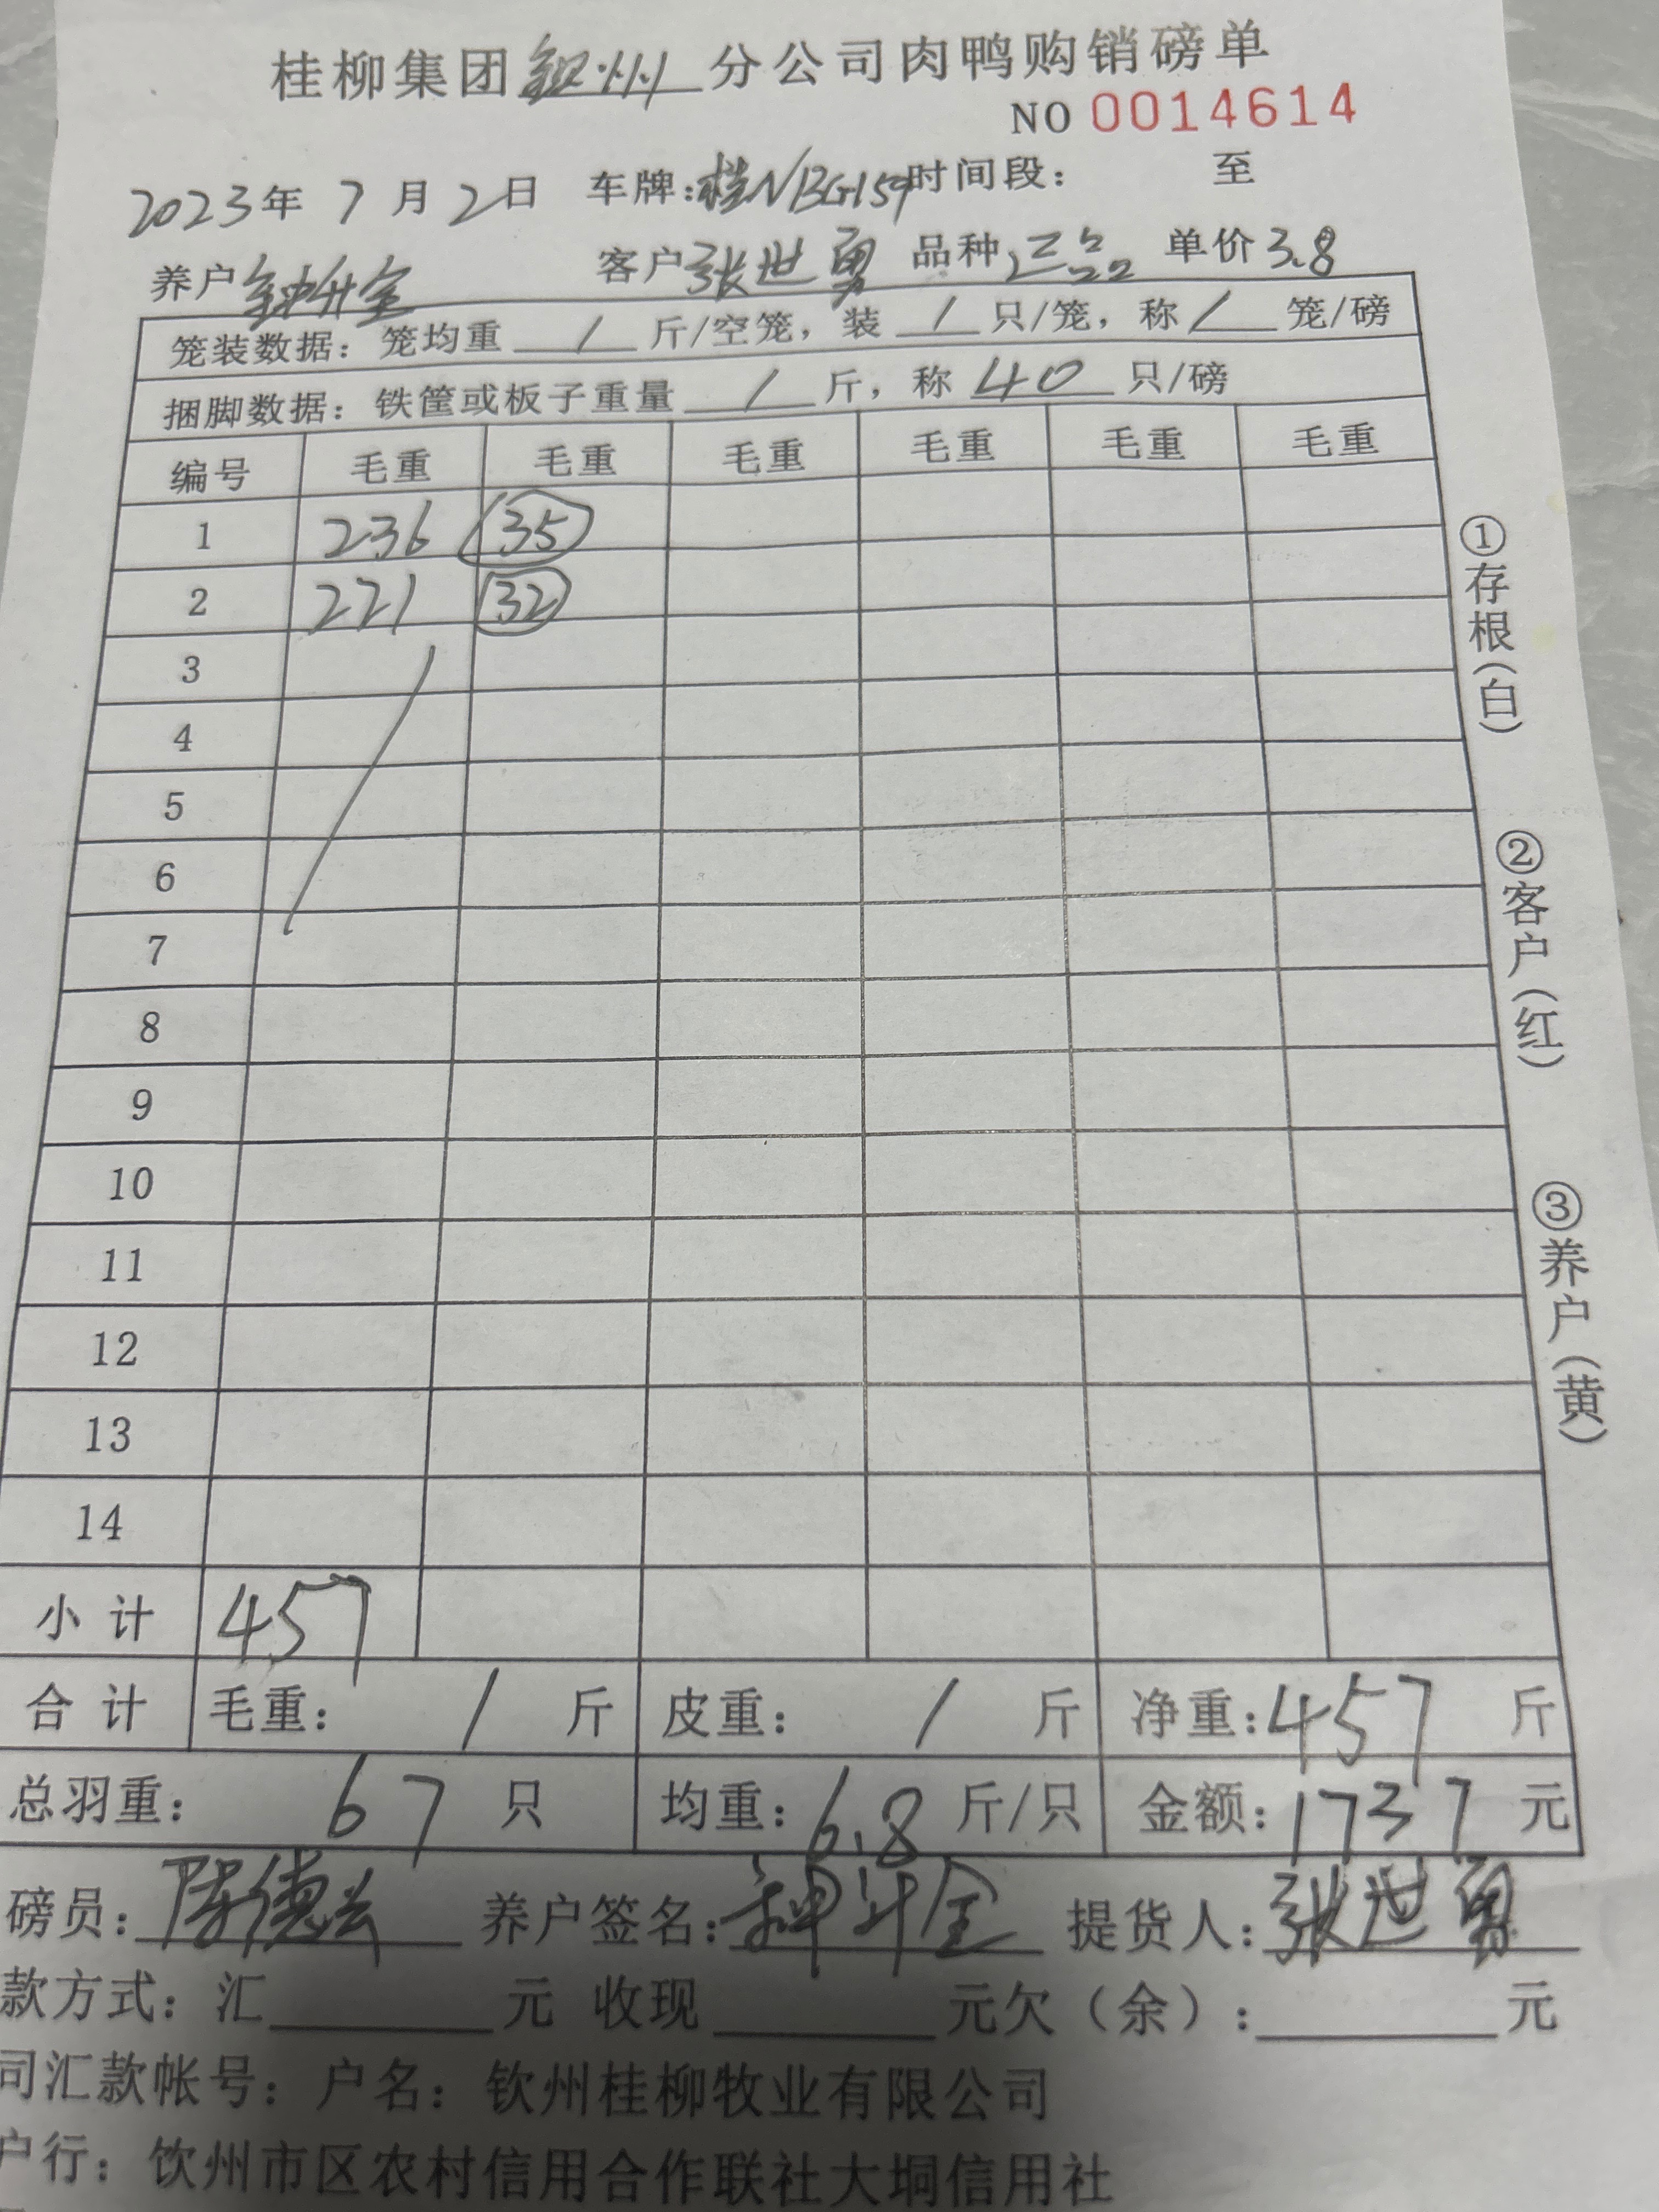 桂柳集团钦州分公司肉鸭购销磅单
NO 0014614
2023年 7 月 2 日 车牌:桂NBG159 时间段: 至
养户 钟升金 客户 张世勇 品种 三品 单价 3.8
笼装数据: 笼均重 / 斤/空笼, 装 / 只/笼, 称 / 笼/磅
捆脚数据: 铁筐或板子重量 / 斤, 称 40 只/磅
编号 毛重 毛重 毛重 毛重 毛重 毛重
1 236 35
2 221 32
3
4
5
6
7
8
9
10
11
12
13
14
小计 457
合计 毛重: / 斤 皮重: / 斤 净重: 457 斤
总羽重: 67 只 均重: 6.8 斤/只 金额: 1737 元
磅员: 陈德 养户签名: 钟升金 提货人: 张世勇
款方式: 汇 元 收现 元欠(余): 元
司汇款帐号: 户名: 钦州桂柳牧业有限公司
户行: 钦州市区农村信用合作联社大垌信用社
①存根(白)
②客户(红)
③养户(黄)